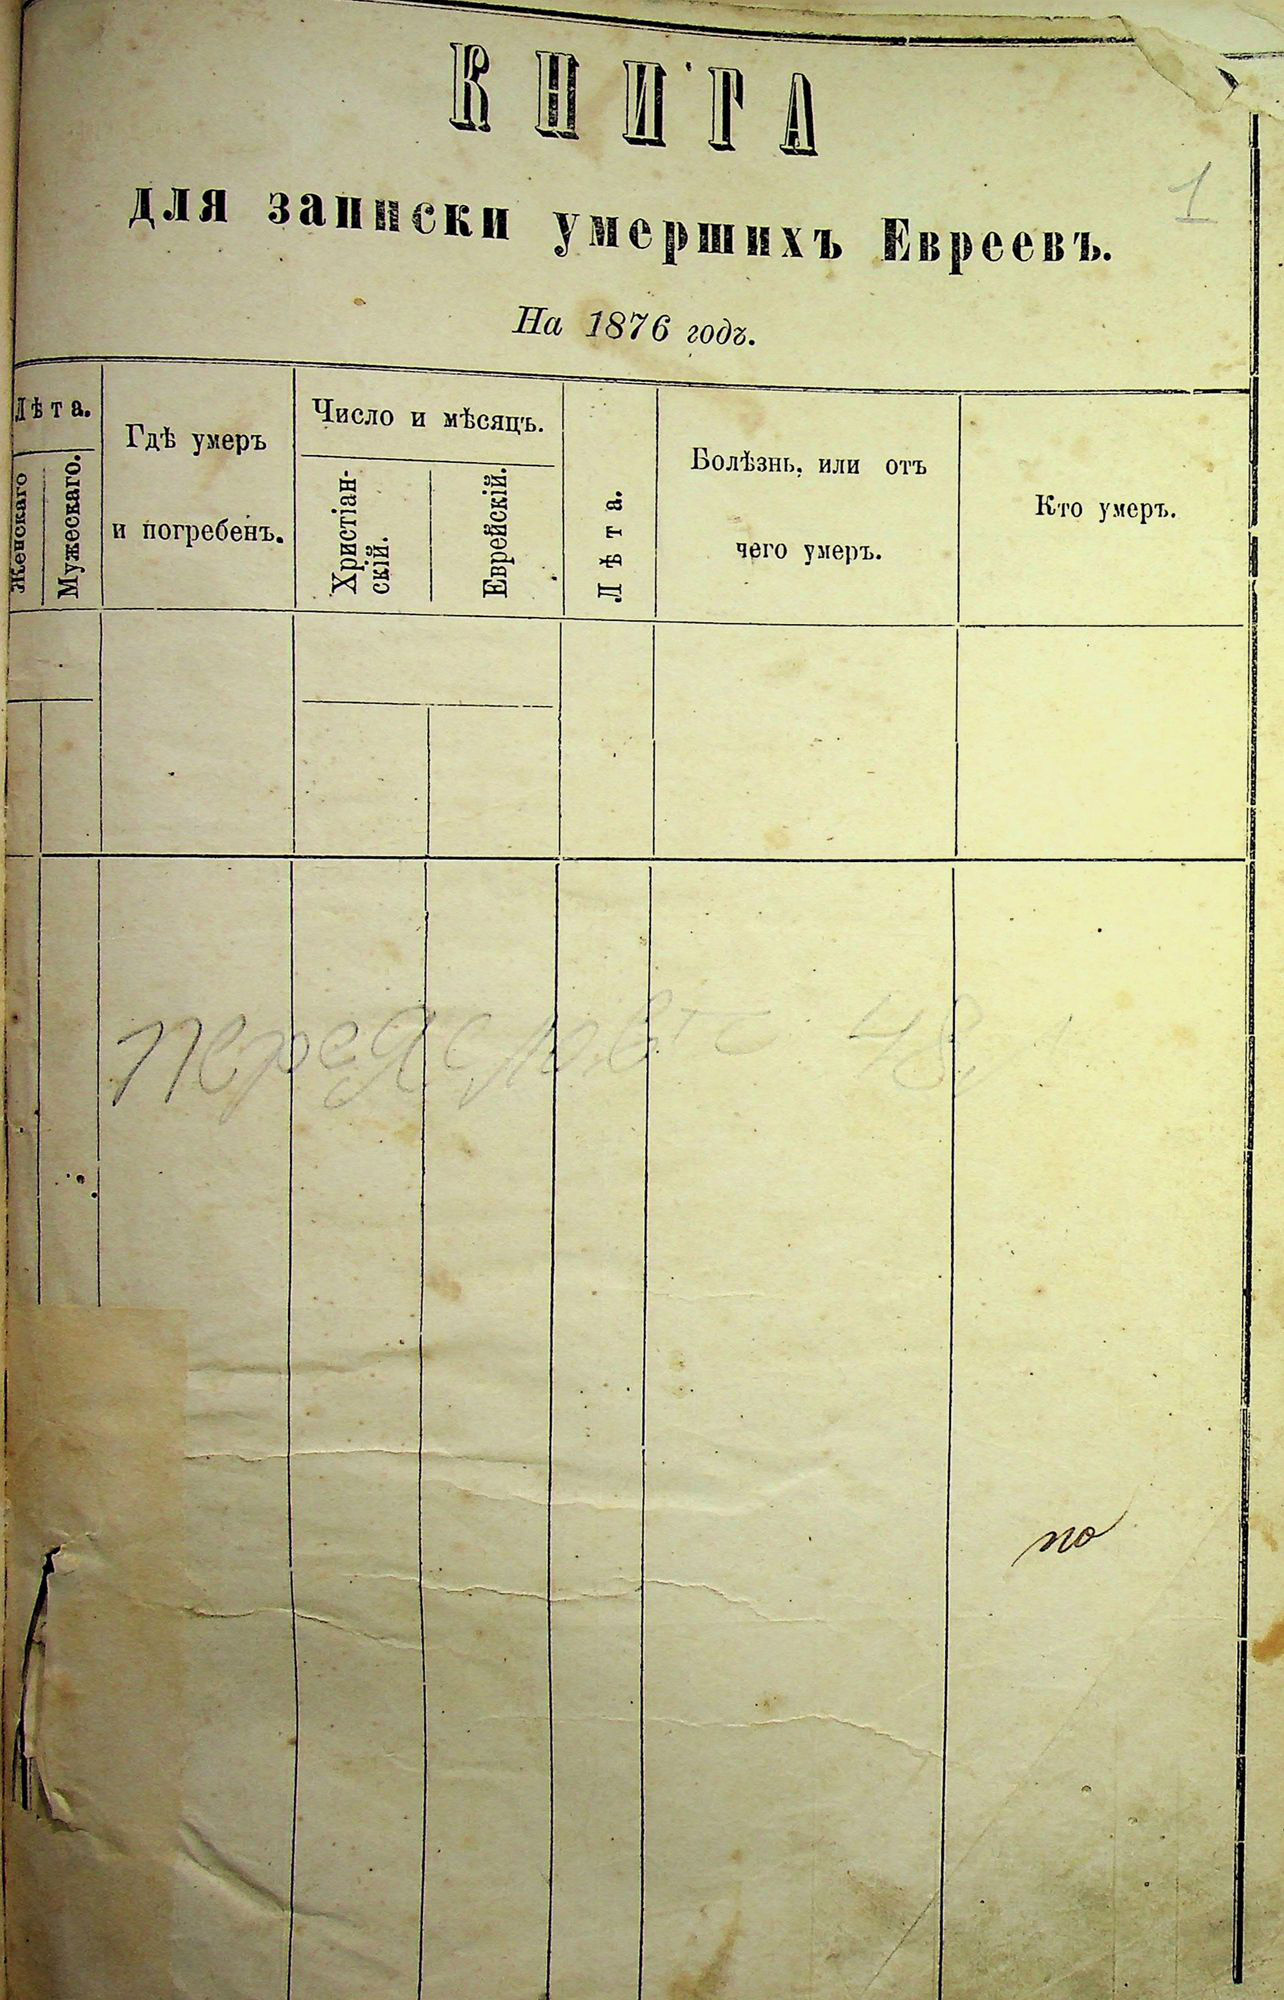 КНИГА
1
для записки умершихъ Евреевъ.
На 1876 годъ.
Лѣта.
Женскаго
Мужескаго.
Гдѣ умеръ
и погребенъ.
Число и мѣсяцъ.
Христіан-
скій.
Еврейскій.
Лѣта.
Болѣзнь, или отъ
чего умеръ.
Кто умеръ.
48
по